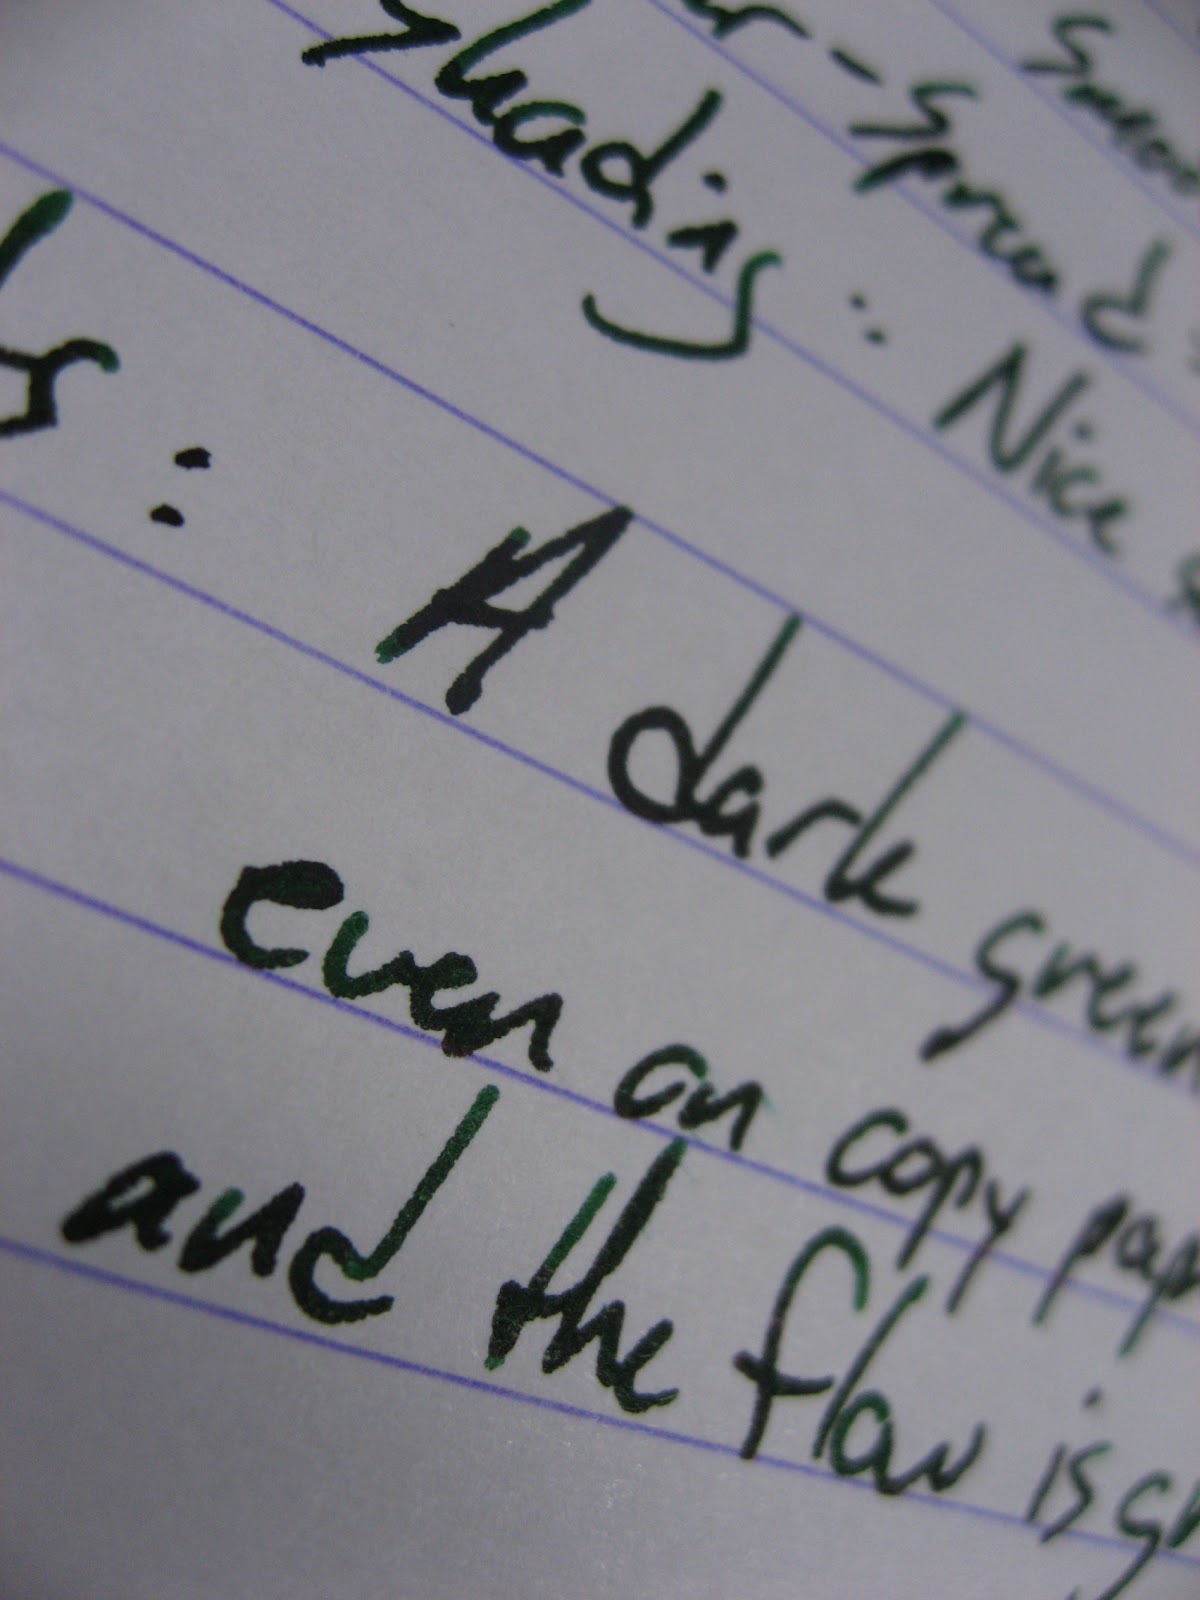 Smoo
- Spread
Shading : Nice
: A dark green
even on copy pap
and the flow is gr